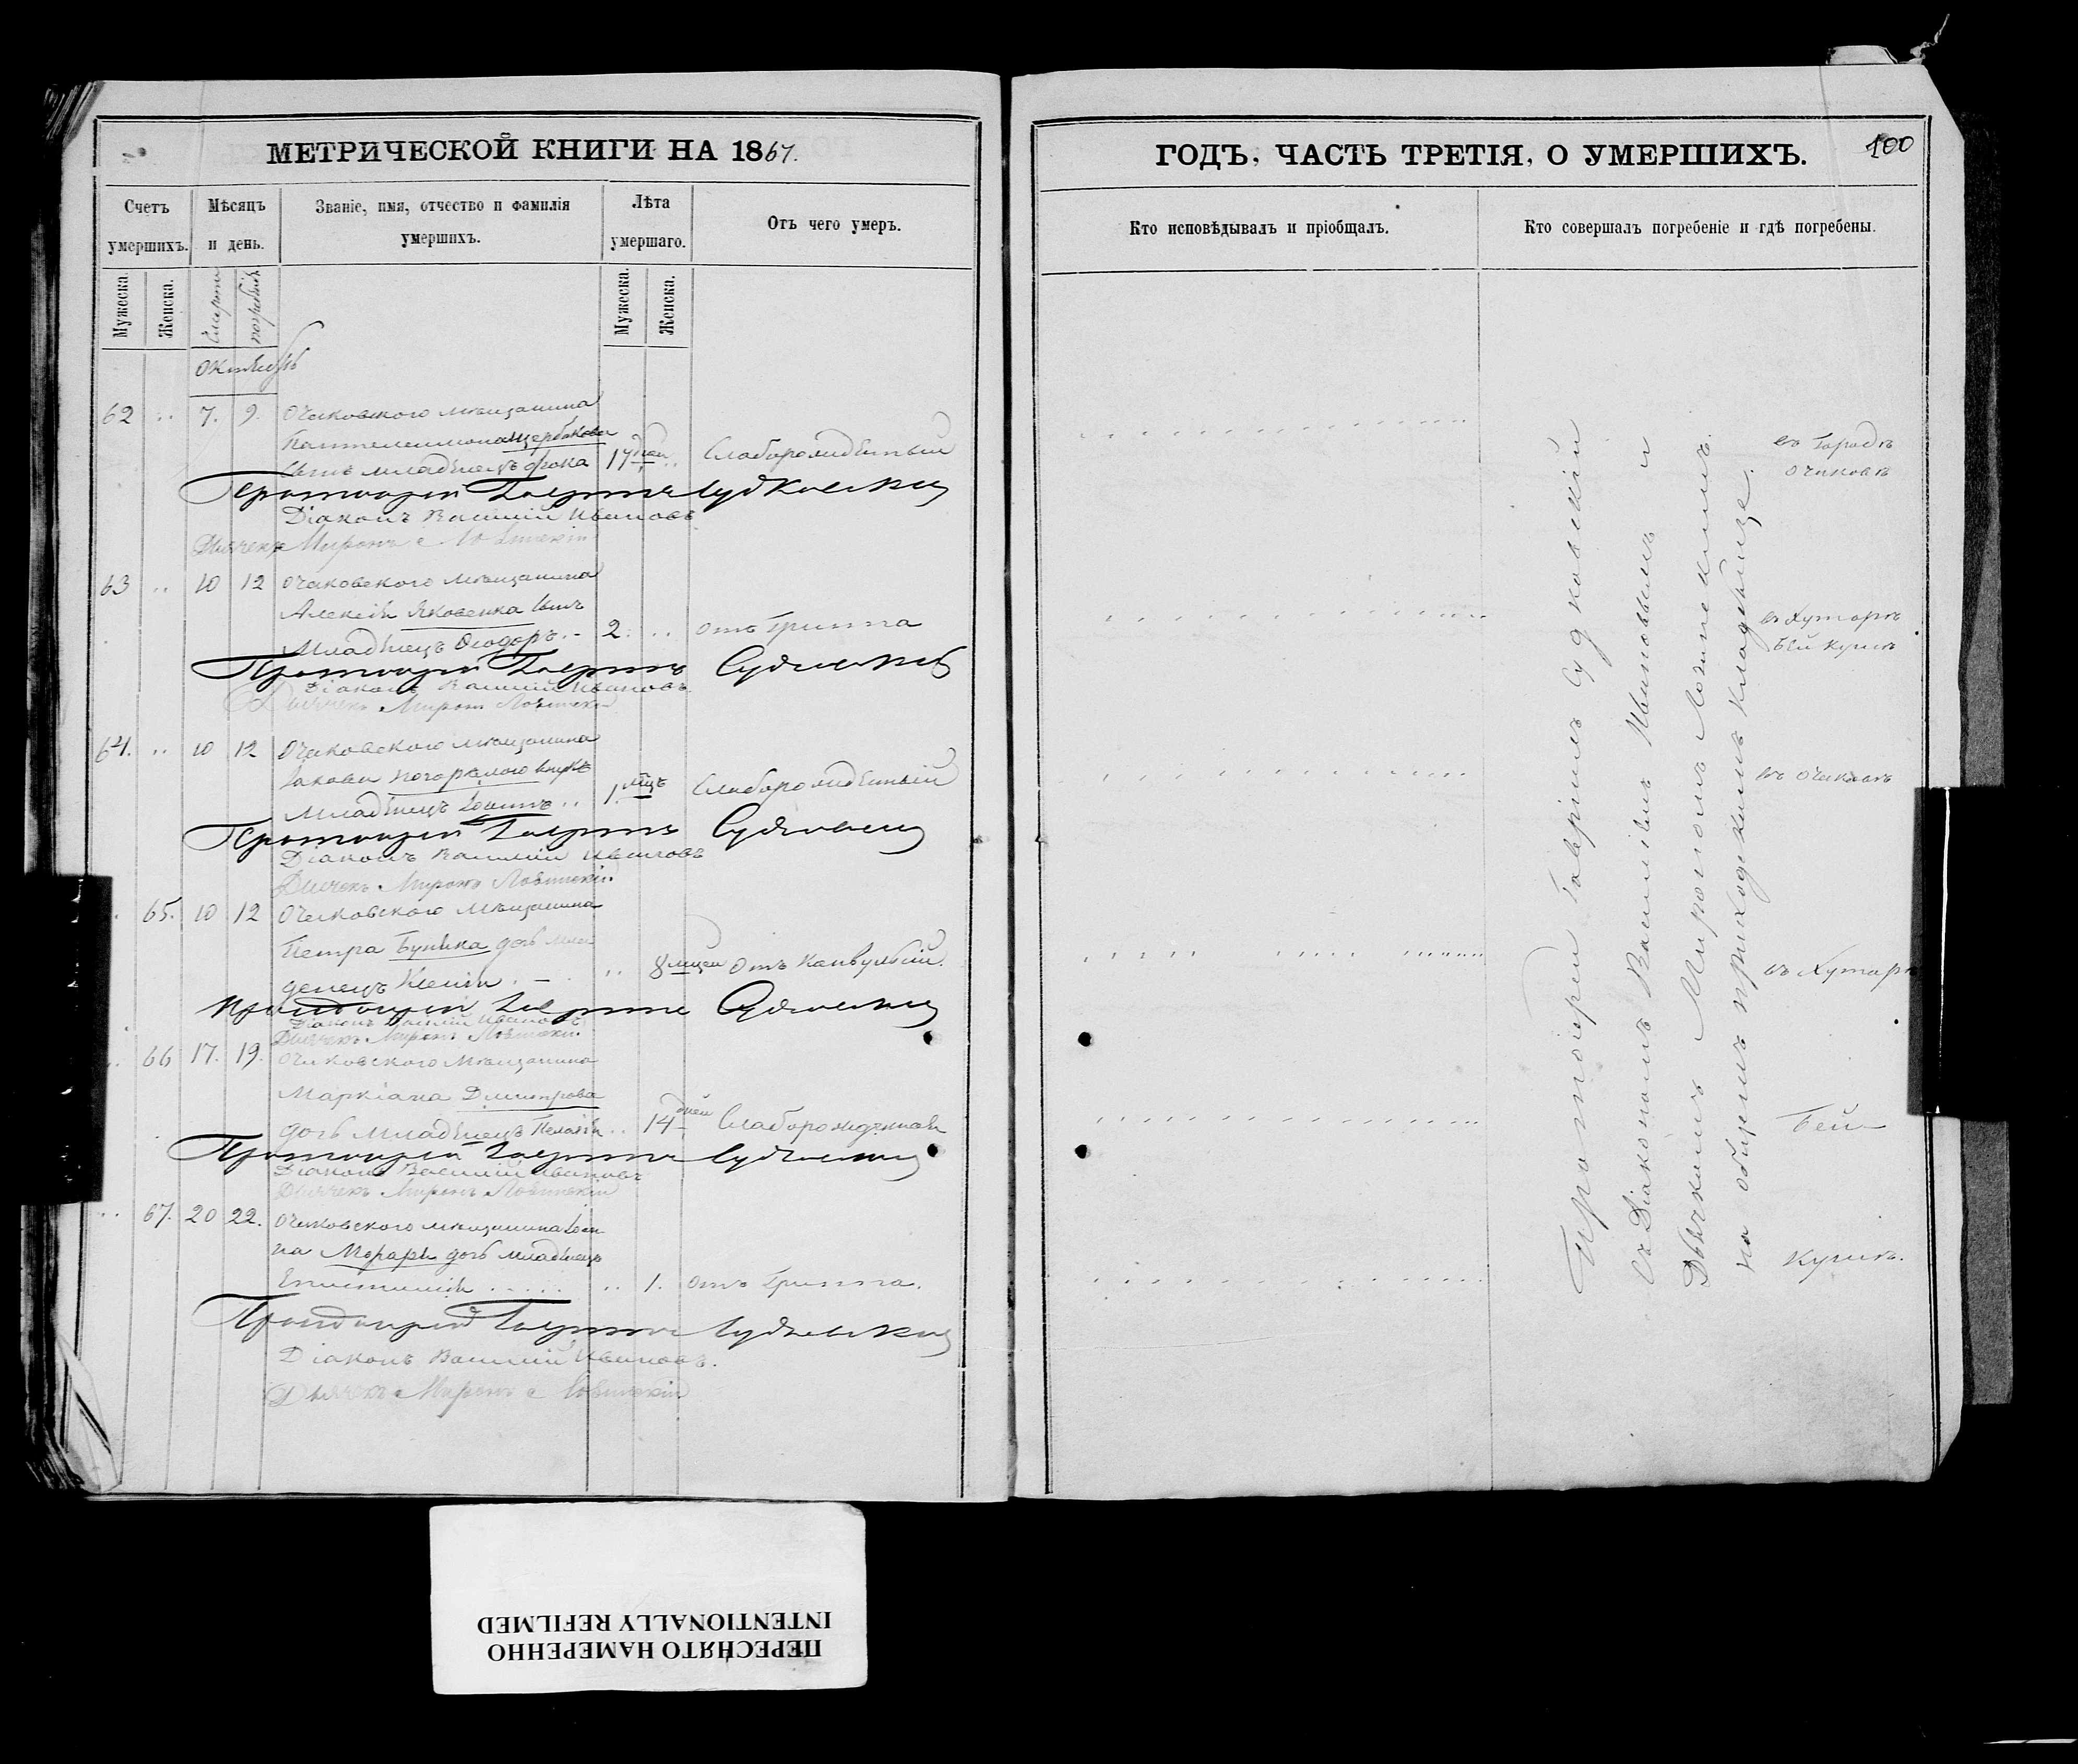 МЕТРИЧЕСКОЙ КНИГИ НА 1867.
Счетъ умершихъ.
Мѣсяцъ и день.
Званіе, имя, отчество и фамилія умершихъ.
Лѣта умершаго.
Отъ чего умеръ.
Мужеска. Женска. Смерти погребенія Мужеска. Женска.
Октябрь
62 7. 9. Очаковскаго мѣщанина
Пантелеимона Щербакова
сынъ младенецъ Фока 17 дней Слаборожденный
Протоіерей Гавріилъ Судковскій
Діаконъ Василій Ивановъ
Дьячекъ Миронъ Лозинскій
63 10 12 Очаковского мѣщанина
Алексѣя Яковенка сынъ
Младенецъ Ѳеодоръ. 2. отъ гриппа
Протоіерей Гавріилъ Судковскій
Діаконъ Василій Ивановъ
Дьячекъ Миронъ Лозинскій
64. 10 12 Очаковского мѣщанина
Іакова Погорѣлого внукъ
Младенецъ Іоаннъ 1. мѣц Слаборожденный
Протоіерей Гавріилъ Судковскій
Діаконъ Василій Ивановъ
Дьячекъ Миронъ Лозинскій
65. 10 12 Очаковского мѣщанина
Петра дочь мла
денецъ Ксенія 8 мѣцей отъ Конвульсій.
Протоіерей Гавріилъ Судковскій
Діаконъ Василій Ивановъ
Дьячекъ Миронъ Лозинскій
66 17. 19. Очаковского мѣщанина
Маркіана Димитрова
дочь младенецъ Пелагія 14 дней Слаборожденная
Протоіерей Гавріилъ Судковскій
Діаконъ Василій Ивановъ
Дьячекъ Миронъ Лозинскій
67. 20 22. Очаковского мѣщанина Іоан
на Морарь дочь младенецъ
Епистимія 1. отъ гриппа.
Протоіерей Гавріилъ Судковскій
Діаконъ Василій Ивановъ.
Дьячекъ Миронъ Лозинскій
ГОДЪ, ЧАСТЬ ТРЕТІЯ, О УМЕРШИХЪ.
100
Кто исповѣдывалъ и пріобщалъ.
Кто совершалъ погребеніе и гдѣ погребены.
Протоіерей Гавріилъ Судковскій
съ Діакономъ Василіемъ Ивановымъ и
Дьячкомъ Мирономъ Лозинскимъ
на общемъ приходскомъ кладбищѣ.
въ Городѣ
Очаковѣ
въ Хуторѣ
Бейкушѣ
въ Очаковѣ
въ Хуторѣ
Бей-
кушѣ.
ПЕРЕСНЯТО НАМЕРЕННО
INTENTIONALLY REFILMED